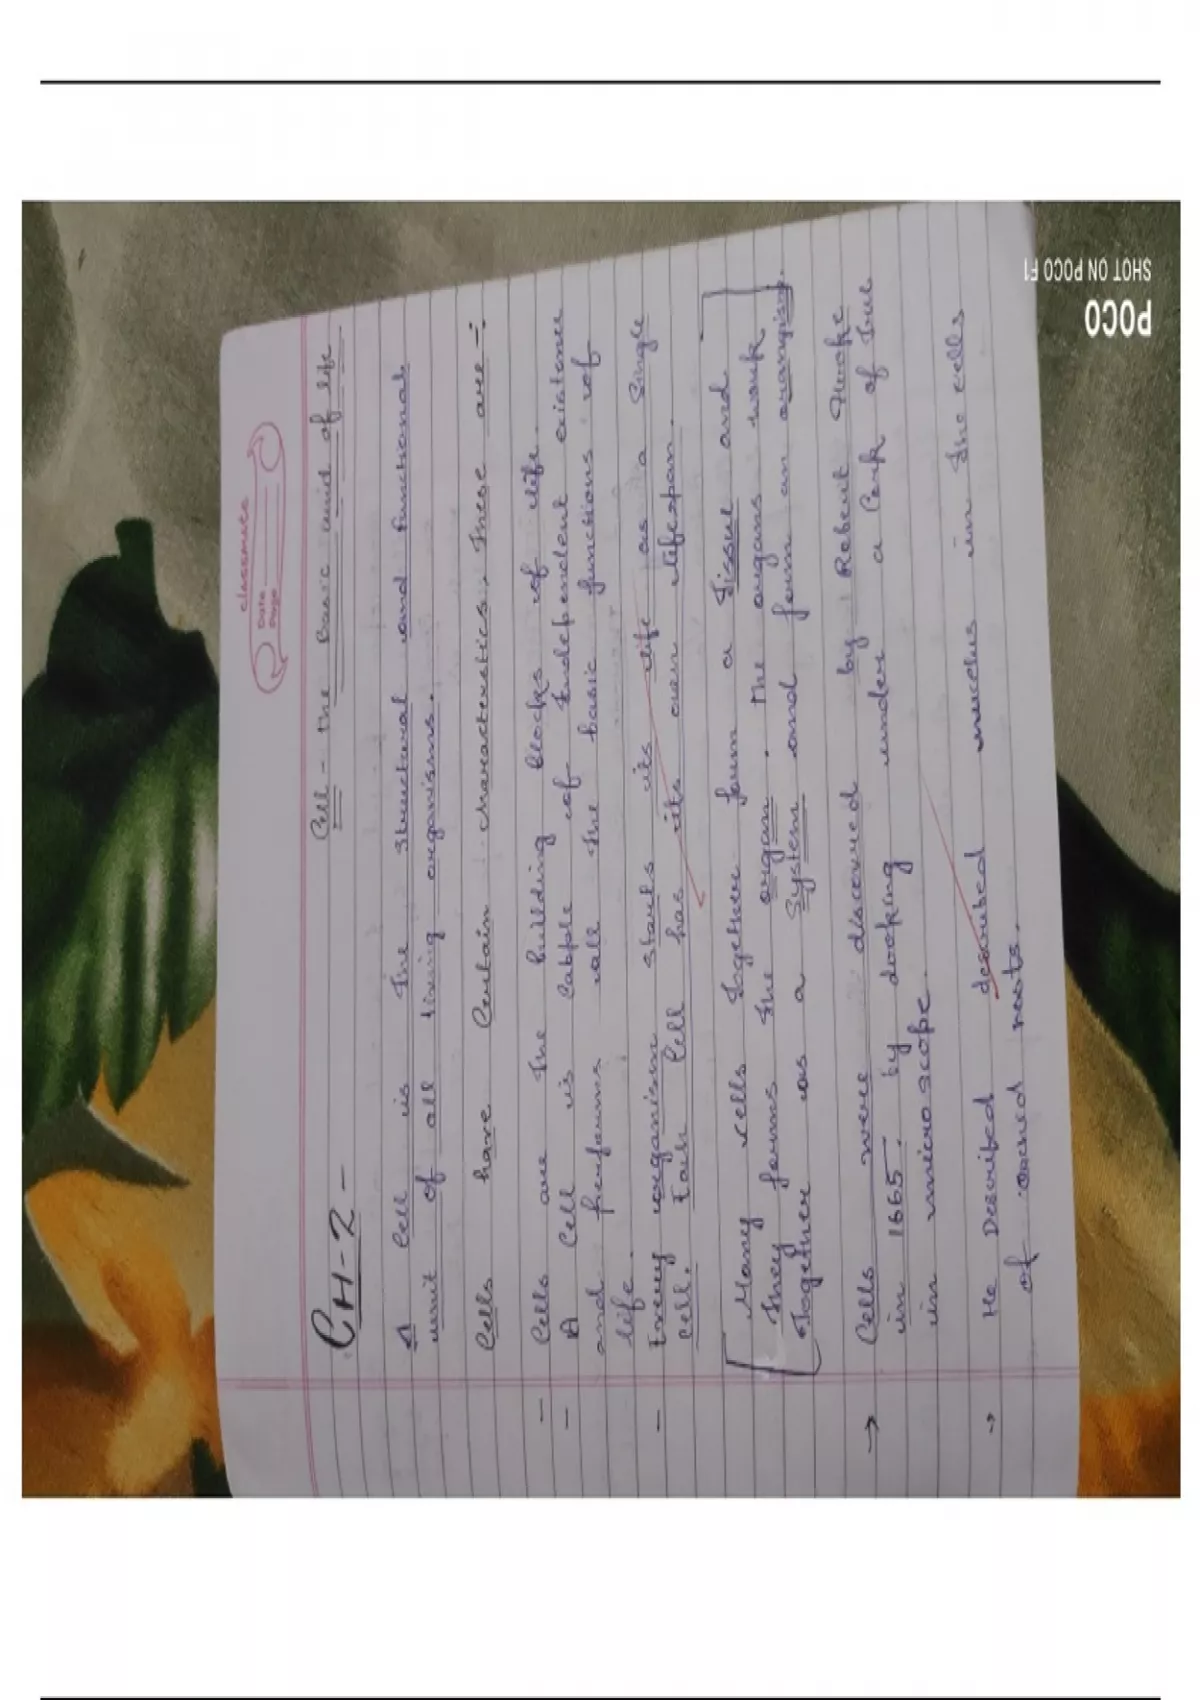 classmate
Date
Page
CH-2 - Cell - the Basic unit of life
A Cell is The structural and functional
unit of all living organisms.
Cells have Certain characterstics. These are :-
- Cells are The building blocks of life.
- A Cell is Capble of Independent existence
and performs all the basic functions of
life.
- Every organism starts its life as a Single
Cell. Each Cell has its own lifespan.
Many cells Together form a Tissue and
They forms the organ. The organs work
Together as a System and form an orangism.
→ Cells were discovered by Robert Hooke
in 1665. by looking under a Cork of Tree
in microscope.
→ He Described described nucleus in The cells
of orchid roots.
POCO
SHOT ON POCO F1